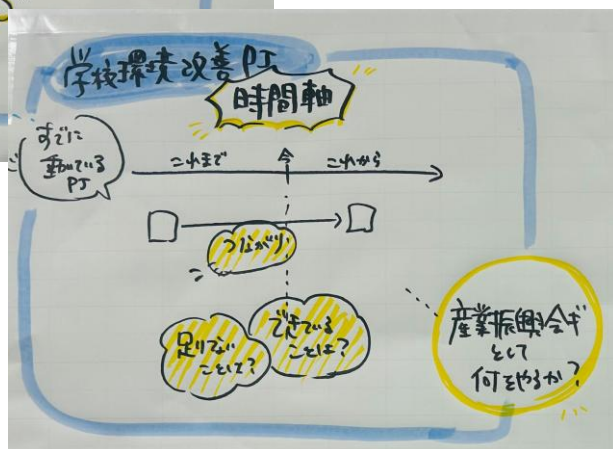 学校環境改善PJ
時間軸
すでに
動いている
PJ
これまで
今
これから
つながり
足りてない
ことって?
できている
ことは?
産業振興会ギ
として
何をやるか?